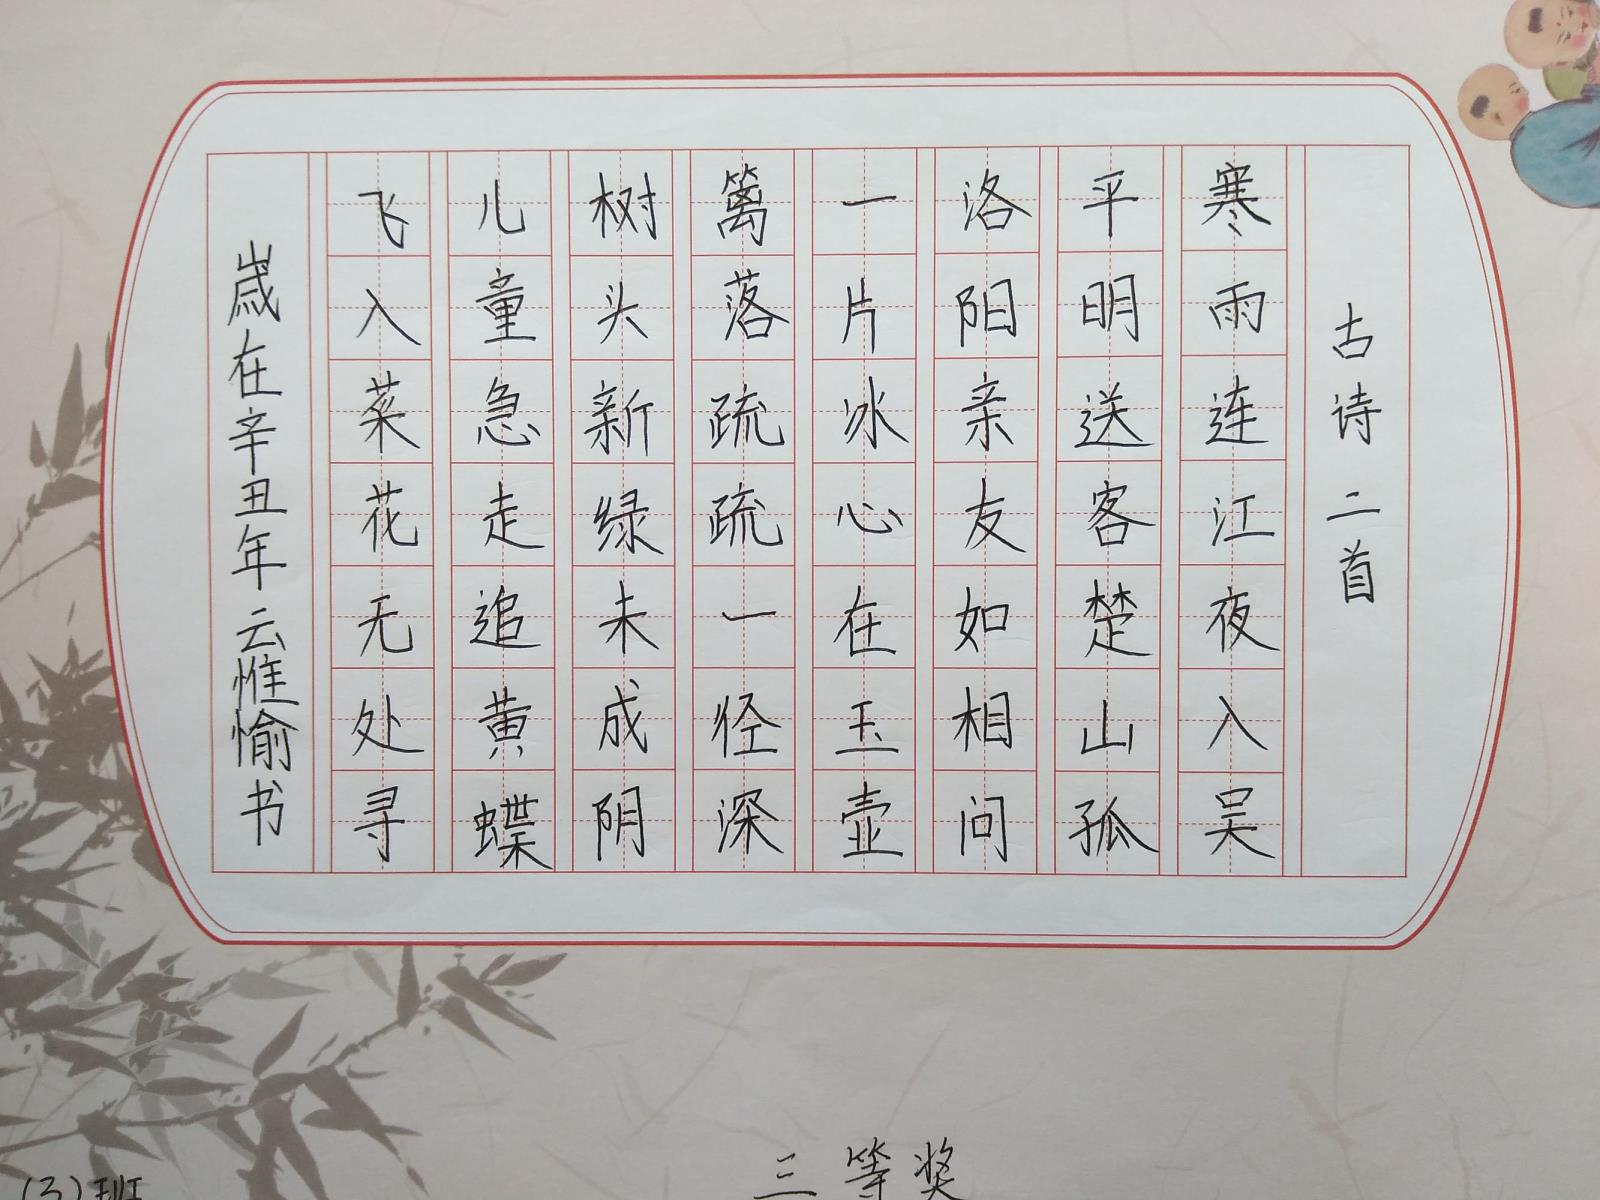 古诗二首
寒雨连江夜入吴
平明送客楚山孤
洛阳亲友如相问
一片冰心在玉壶
篱落疏疏一径深
树头新绿未成阴
儿童急走追黄蝶
飞入菜花无处寻
岁在辛丑年云惟愉书
三等奖
(3)班